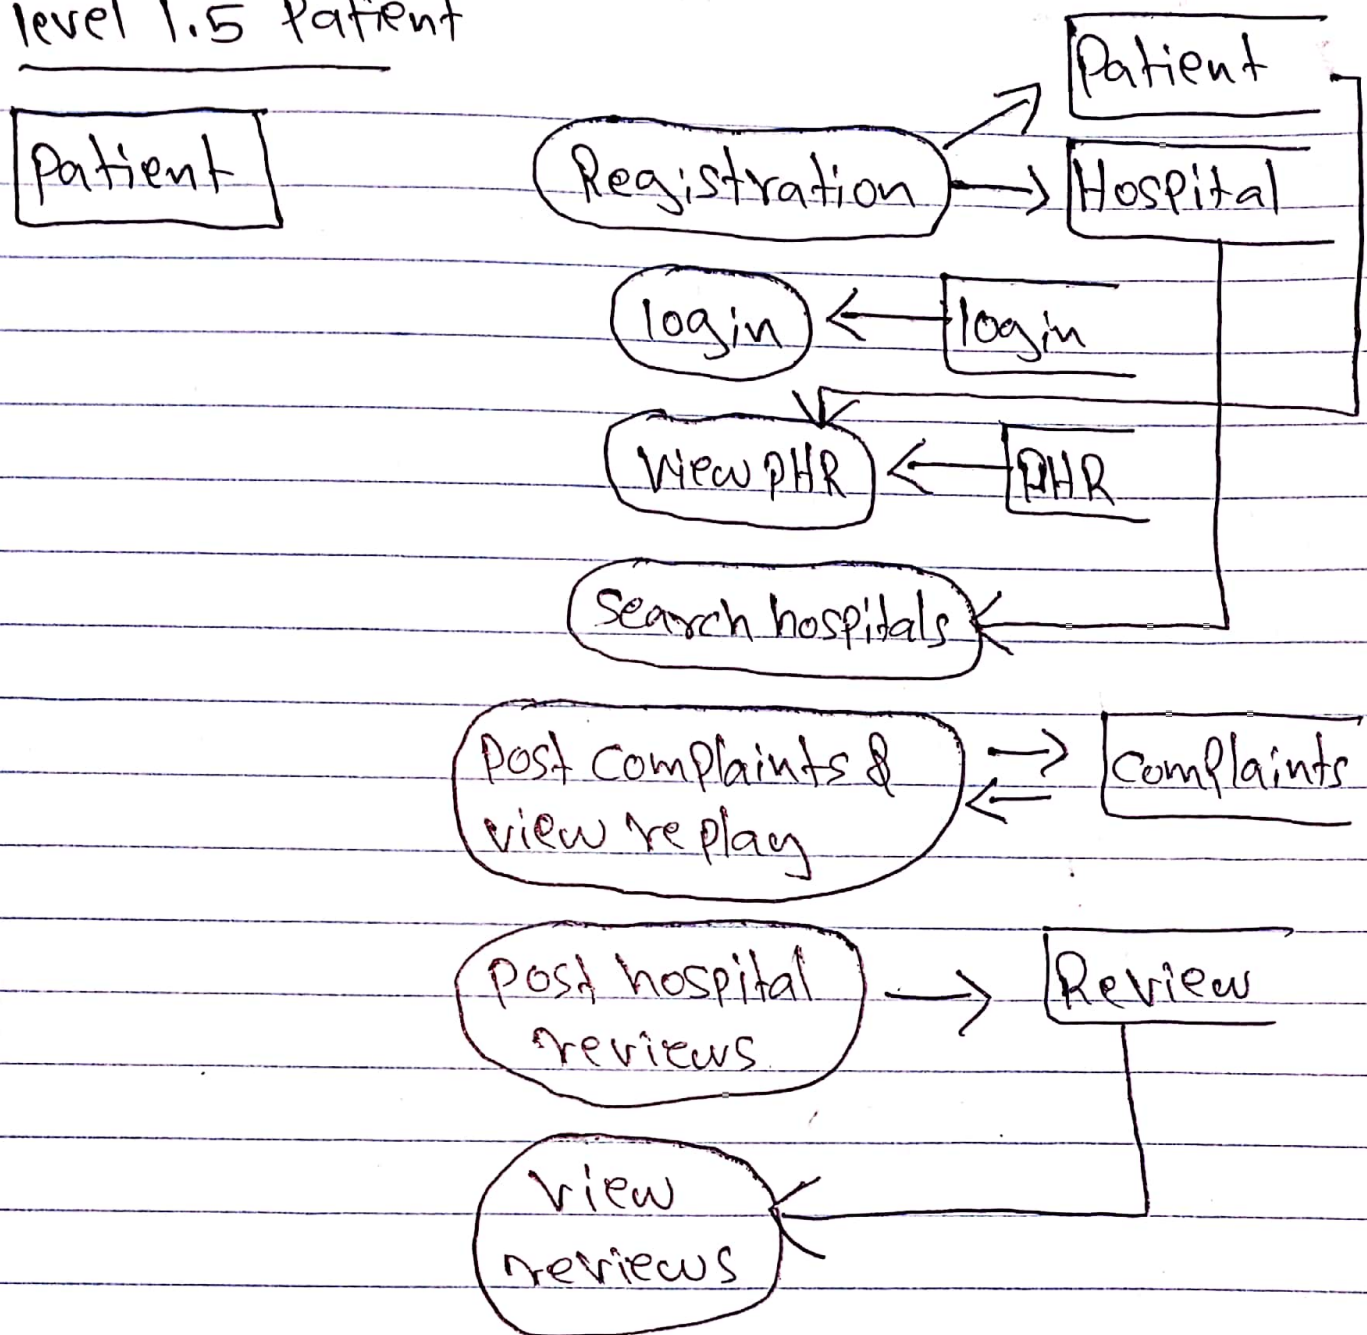 level 1.5 Patient
Patient
Patient
Registration
Hospital
login
login
View PHR
PHR
Search hospitals
Post Complaints &
view replay
Complaints
Post hospital
reviews
Review
view
reviews